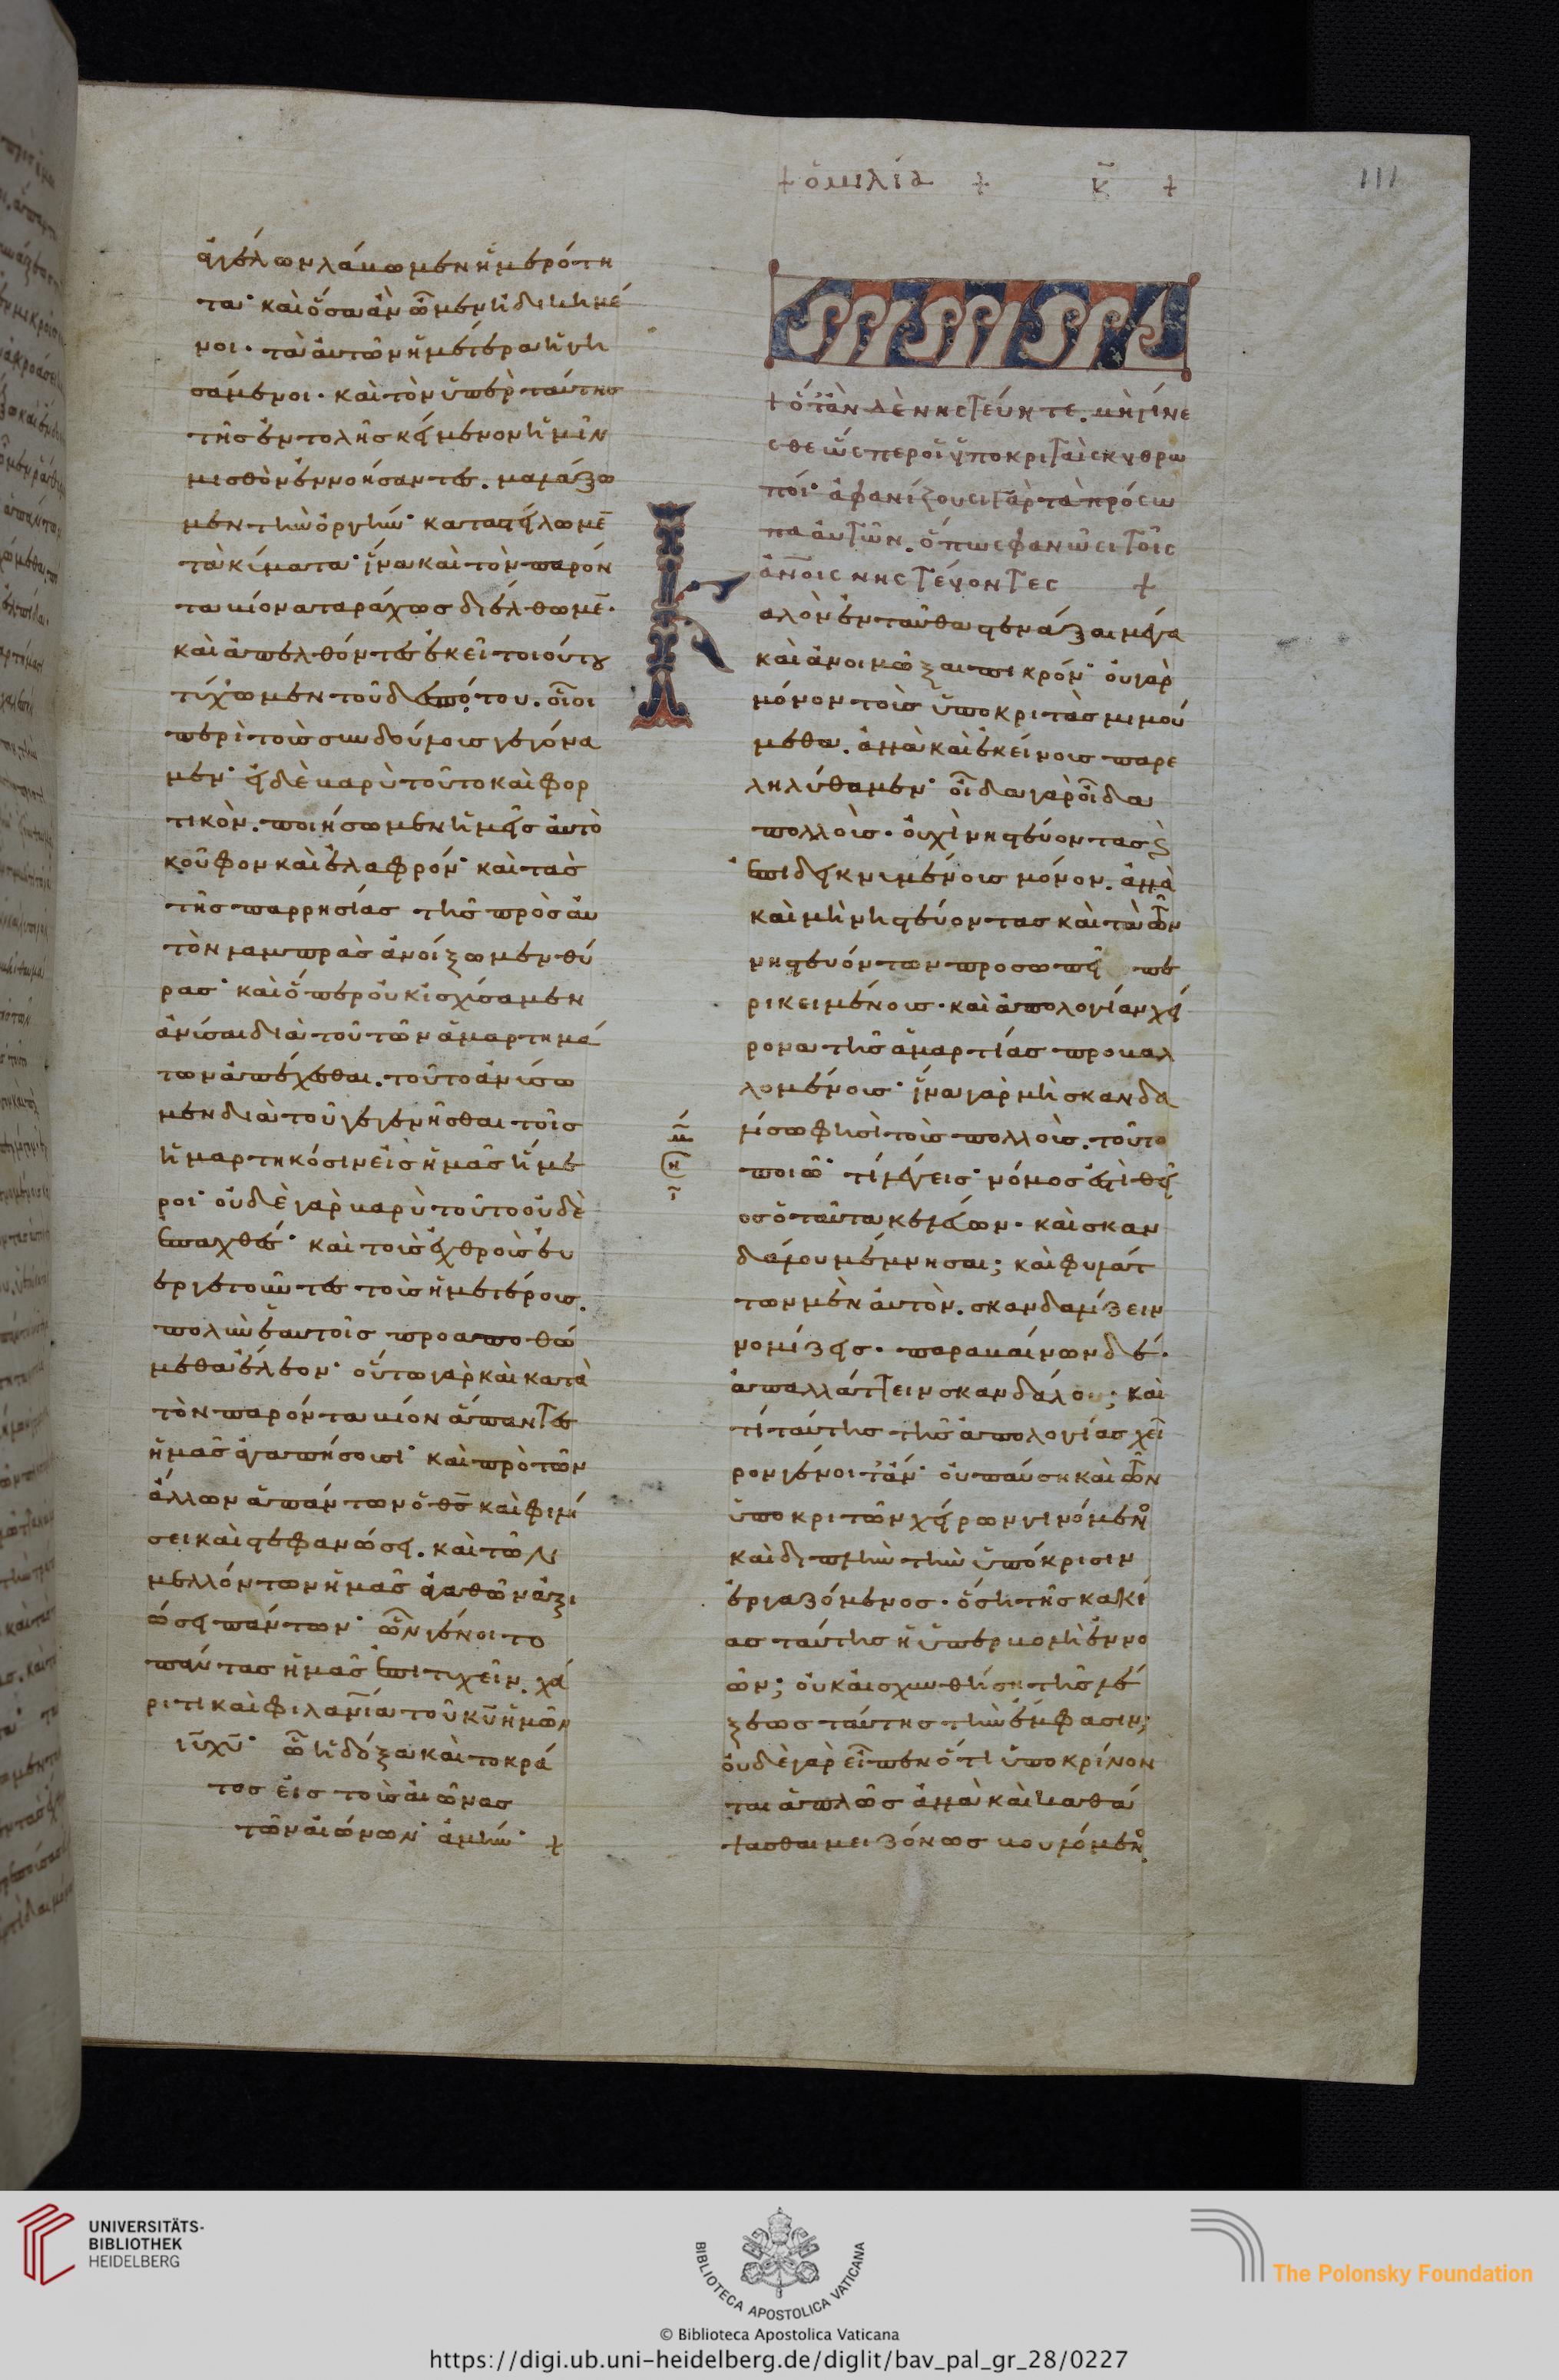 + ὁμιλία + κ̄ +
111
ἀγγέλων λάβωμεν ἡμερότη
τα· καὶ ὅσα ἂν ὦμεν ἠδικημέ
νοι· τὰ αὐτῶν ἡμέτερα ἡγη
σάμενοι· καὶ τὸν ὑπὲρ ταύτης
τῆς ἐντολῆς κείμενον ἡμῖν
μισθὸν ἐννοήσαντες. μαλάξω
μεν τὴν ὀργήν· καταστείλωμε̄
τὰ κύματα· ἵνα καὶ τὸν παρόν
τα βίον ἀταράχως διέλθωμε̄·
καὶ ἀπελθόντες ἐκεῖ τοιούτου
τύχωμεν τοῦ δεσπότου. οἷοι
περὶ τοὺς συνδούλους γεγόνα
μεν· εἰ δὲ βαρὺ τοῦτο καὶ φορ
τικὸν. ποιήσωμεν ἡμεῖς αὐτὸ
κοῦφον καὶ ἐλαφρόν· καὶ τὰς
τῆς παρρησίας τῆς πρὸς αὐ
τὸν λαμπρὰς ἀνοίξωμεν θύ
ρας· καὶ ὅπερ οὐκ ἰσχύσαμεν
ἀνύσαι διὰ τοῦ τῶν ἁμαρτημά
των ἀπέχεσθαι. τοῦτο ἀνύσω
μεν διὰ τοῦ γεγενῆσθαι τοῖς
ἡμαρτηκόσιν εἰς ἡμᾶς ἥμε
ροι· οὐδὲ γὰρ βαρὺ τοῦτο οὐδὲ
ἐπαχθές· καὶ τοὺς ἐχθροὺς εὐ
εργετοῦντες τοὺς ἡμετέρους.
πολὺν ἑαυτοῖς προαποθώ
μεθα ἔλεον· οὕτω γὰρ καὶ κατὰ
τὸν παρόντα βίον ἅπαντες
ἡμᾶς ἀγαπήσουσι· καὶ πρὸ τῶν
ἄλλων ἁπάντων ὁ θ̄ς̄ καὶ φιλή
σει καὶ στεφανώσει. καὶ τῶν
μελλόντων ἡμᾶς ἀγαθῶν ἀξι
ώσει πάντων· ὧν γένοιτο
πάντας ἡμᾶς ἐπιτυχεῖν. χά
ριτι καὶ φιλαν̄ία τοῦ κ̄ῡ ἡμῶν
ῑῡ χ̄ῡ· ὧ ἡ δόξα καὶ το κρά
τος εἰς τοὺς αἰῶνας
τῶν αἰώνων· ἀμήν· +
+ ὅταν δὲ νηστεύητε. μὴ γίνε
σθε ὥσπερ οἱ ὑποκριταὶ σκυθρω
ποί· ἀφανίζουσι γὰρ τὰ πρόσω
πα αὐτῶν. ὅπως φανῶσι τοῖς
ἀν̄οις νηστεύοντες +
Καλὸν ἐνταῦθα στενάξαι μέγα
καὶ ἀνοιμῶξαι πικρόν· οὐ γὰρ
μόνον τοὺς ὑποκριτὰς μιμού
μεθα. ἀλλὰ καὶ ἐκείνους παρε
ληλύθαμεν· οἶδα γὰρ οἶδα
πολλοὺς. οὐχὶ νηστεύοντας καὶ
ἐπιδεικνυμένους μόνον. ἀλλὰ
καὶ μὴ νηστεύοντας καὶ τὰ τῶν
νηστευόντων προσωπεῖα πε
ρικειμένους. καὶ ἀπολογίαν χεί
ρονα τῆς ἁμαρτίας προβαλ
λομένους· ἵνα γὰρ μὴ σκανδα
λίσω φησὶ τοὺς πολλοὺς. τοῦτο
ποιῶ· τί λέγεις· νόμος ἐστὶ θεῖ
ος ὁ ταῦτα κελεύων. καὶ σκαν
δάλου μέμνησαι; καὶ φυλάτ
των μὲν αὐτὸν. σκανδαλίζειν
νομίζεις. παραβαίνων δὲ.
ἀπαλλάττειν σκανδάλου; καὶ
τί ταύτης τῆς ἀπολογίας χεῖ
ρον γένοιτ' ἄν· οὐ παύση καὶ τῶν
ὑποκριτῶν χείρων γινόμενος
καὶ διπλῆν τὴν ὑπόκρισιν
ἐργαζόμενος. ὅση τῆς κακί
ας ταύτης ἡ ὑπερβολὴ ἐννο
ῶν; οὐκ αἰσχυνθήση τῆς λέ
ξεως ταύτης τὴν ἔμφασιν;
οὐδὲ γὰρ εἶπεν ὅτι ὑποκρίνον
ται ἁπλῶς ἀλλὰ καὶ καθά
ψασθαι μειζόνως βουλόμενος
UNIVERSITÄTS-
BIBLIOTHEK
HEIDELBERG
BIBLIOTECA APOSTOLICA VATICANA
The Polonsky Foundation
© Biblioteca Apostolica Vaticana
https://digi.ub.uni-heidelberg.de/diglit/bav_pal_gr_28/0227